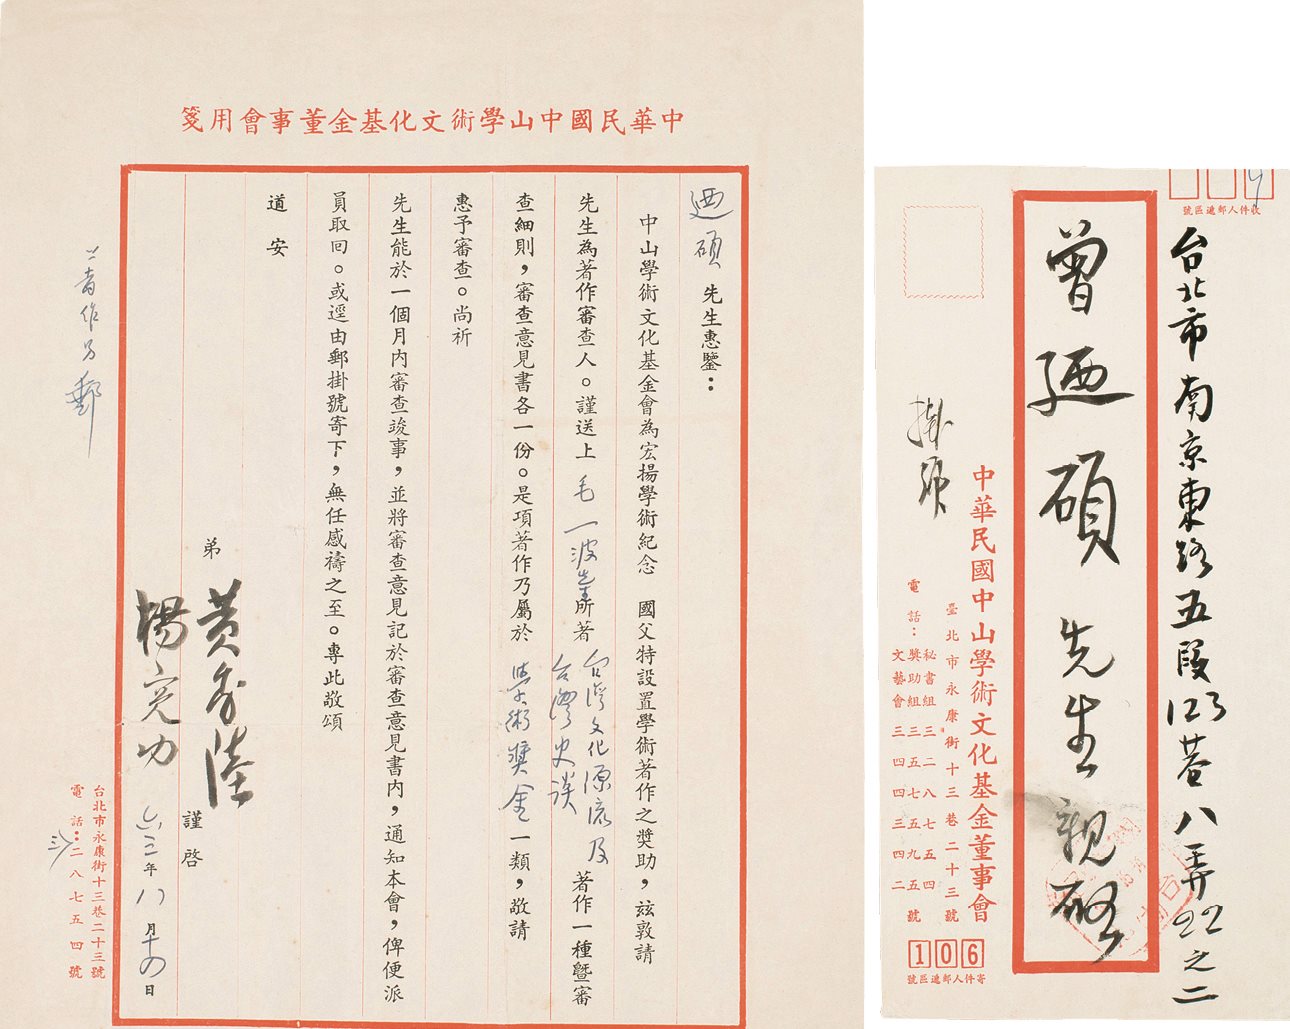 中華民國中山學術文化基金董事會用箋
迺碩 先生惠鑒：
中山學術文化基金會為宏揚學術紀念 國父特設置學術著作之獎助，玆敦請
先生為著作審查人。謹送上 毛一波先生所著 台灣文化源流及台灣史談 著作一種暨審
查細則，審查意見書各一份。是項著作乃屬於 學術獎金 一類，敬請
惠予審查。尚祈
先生能於一個月內審查竣事，並將審查意見記於審查意見書內，通知本會，俾便派
員取回。或逕由郵掛號寄下，無任感禱之至。專此敬頌
道 安
弟 黃季陸
楊亮功 謹啓
六三年八月十四日
台北市永康街十三巷二十三號
電話：二八七五四號
著作另郵
收件人郵遞區號
台北市南京東路五段123巷八弄22之二
曾迺碩先生親啓
中華民國中山學術文化基金董事會
臺北市永康街十三巷二十三號
電話：
秘書組三二八七五四
獎助組三五七五九五號
文藝會三四四三四二
掛號
106
寄件人郵遞區號